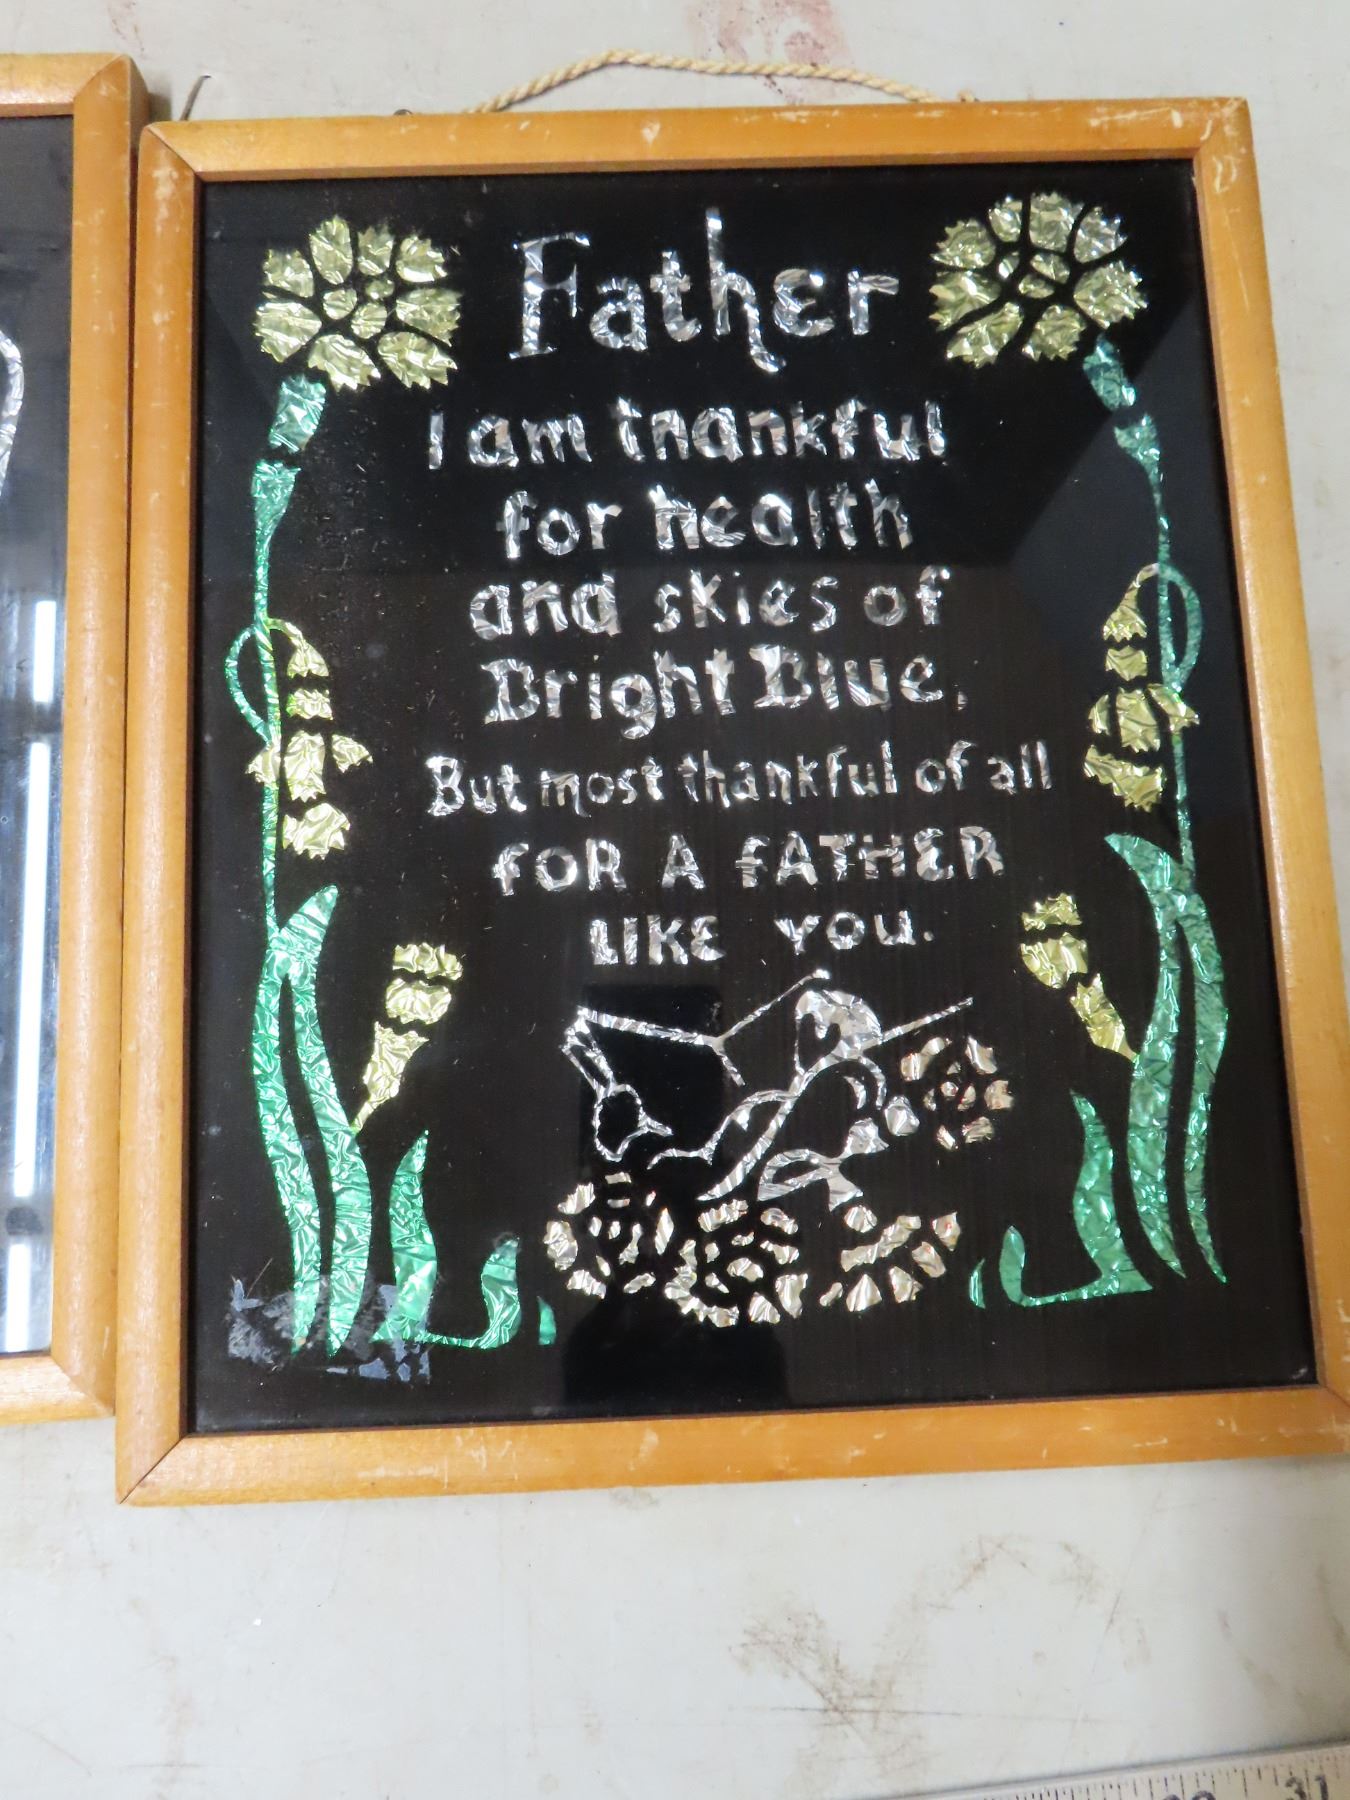 Father
I am thankful
for health
and skies of
Bright Blue.
But most thankful of all
FOR A FATHER
LIKE YOU.
31